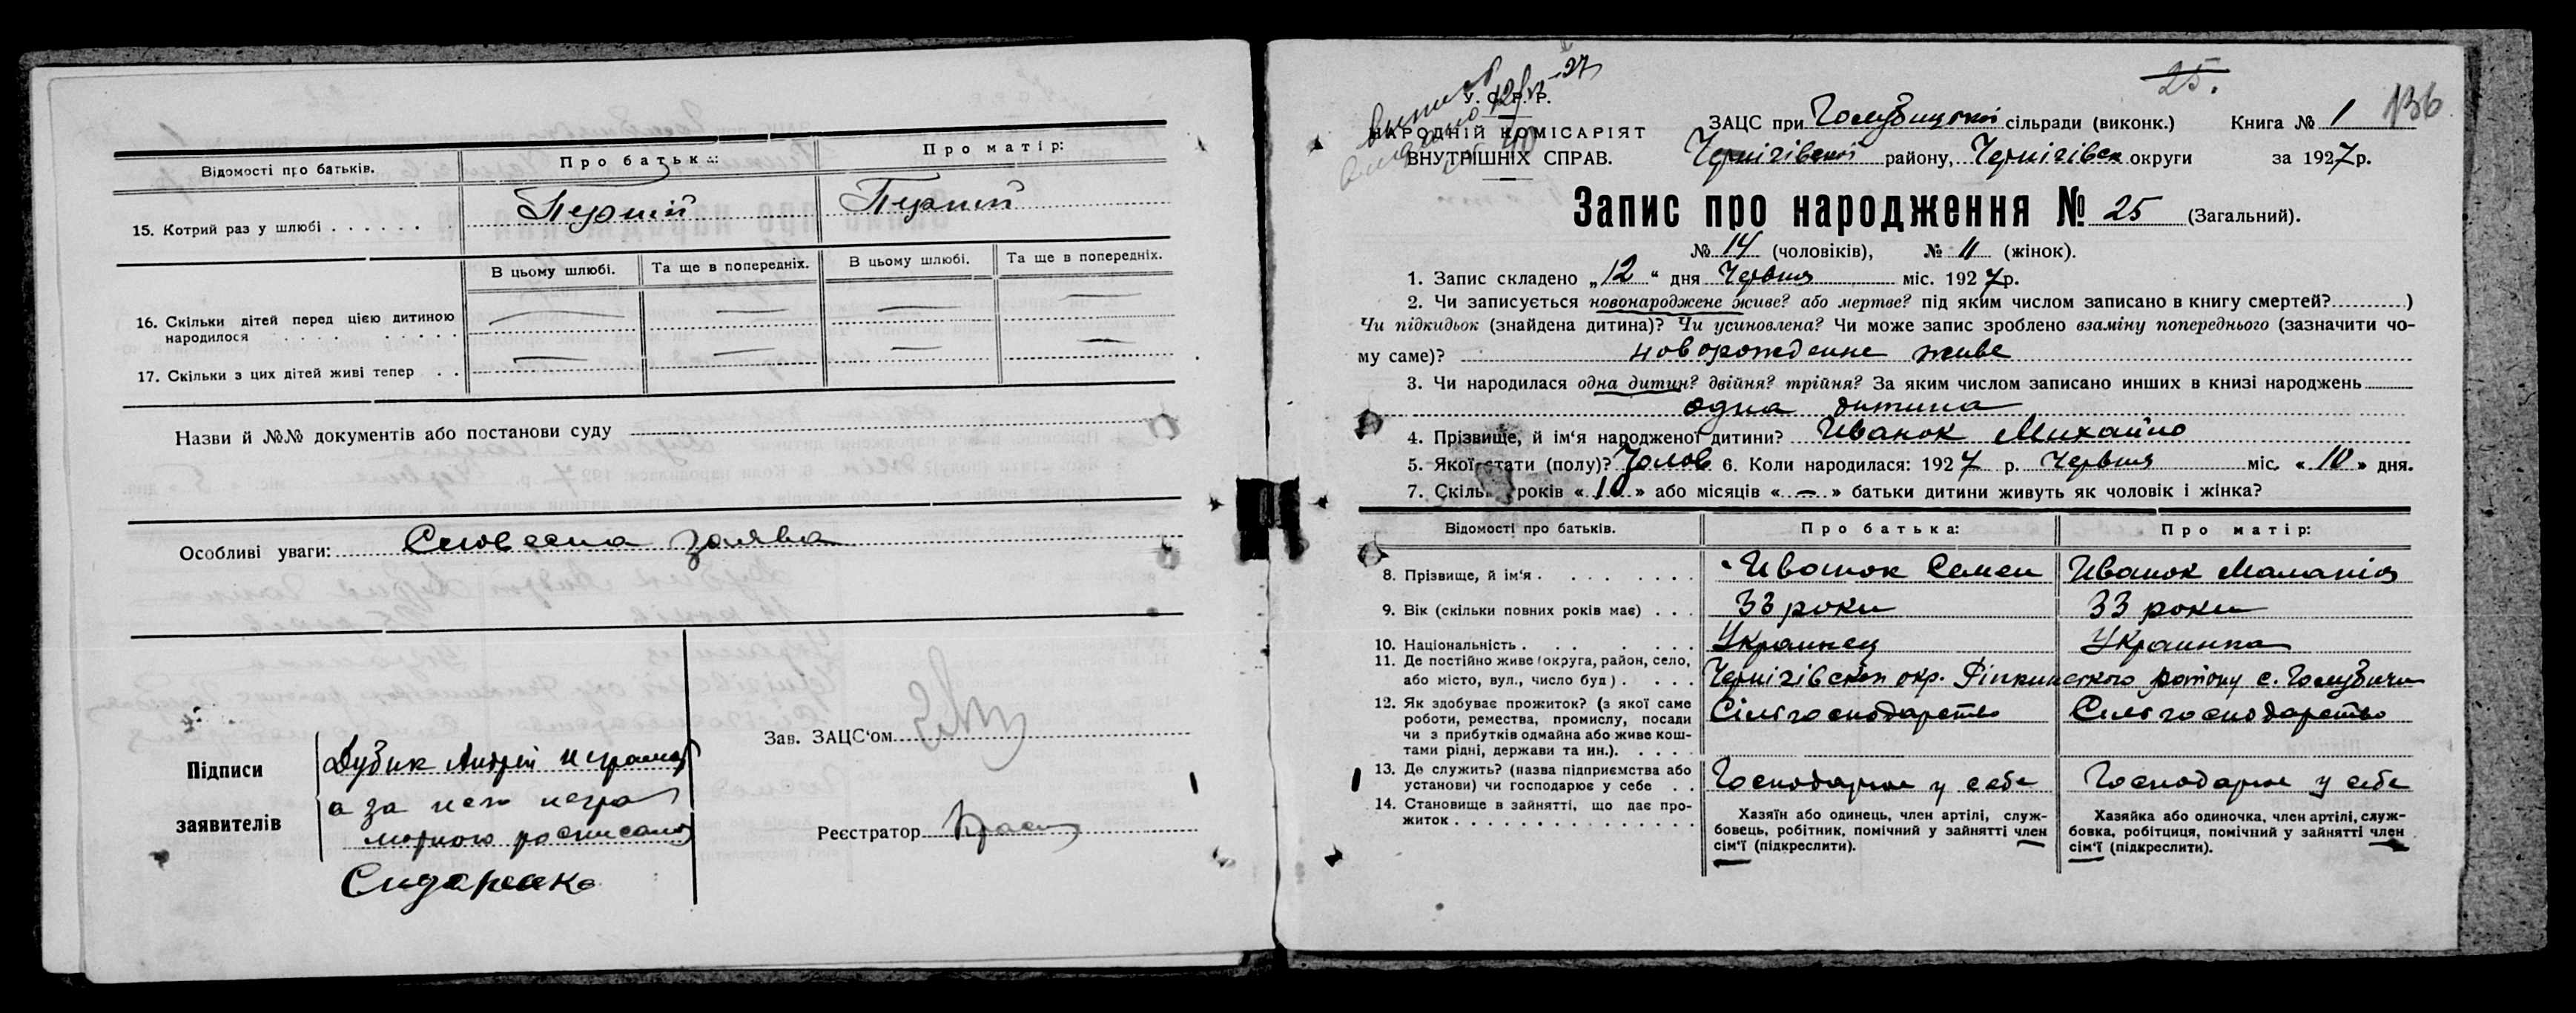 Відомості про батьків.
Про батька:
Про матір:
15. Котрий раз у шлюбі . . . . . . Перший Перший
В цьому шлюбі. Та ще в попередніх. В цьому шлюбі. Та ще в попередніх.
16. Скільки дітей перед цією дитиною — — — —
народилося . . . . . . . . .
17. Скільки з цих дітей живі тепер . . — — — —
Назви й №№ документів або постанови суду
Особливі уваги: Словесна заява
Підписи
заявителів
Дубик Андрей неграмот
а за него негра
мотного росписался
Сидоренко
Зав. ЗАЦС'ом
Реєстратор
25.
136
У. С. Р. Р.
НАРОДНІЙ КОМІСАРІЯТ
ВНУТРІШНІХ СПРАВ.
ЗАЦС при Голубицькій сільради (виконк.) Книга № 1
Чернігівской району, Чернігівск округи за 1927 р.
Запис про народження № 25 (Загальний).
№ 14 (чоловіків), № 11 (жінок).
1. Запис складено „12" дня Червня міс. 1927 р.
2. Чи записується новонароджене живе? або мертве? під яким числом записано в книгу смертей?..........)
Чи підкидьок (знайдена дитина)? Чи усиновлена? Чи може запис зроблено взаміну попереднього (зазначити чо-
му саме)? новорожденне живе
3. Чи народилася одна дитин? двійня? трійня? За яким числом записано инших в книзі народжень
одна дитина
4. Прізвище, й ім'я народженої дитини? Иванок Михайло
5. Якої стати (полу)? Чолов. 6. Коли народилася: 1927 р. Червня міс. «10» дня.
7. Скільк років «10» або місяців «—» батьки дитини живуть як чоловік і жінка?
Відомості про батьків. Про батька: Про матір:
8. Прізвище, й ім'я . . . . . . . . Иванок Семен Иванок Маланія
9. Вік (скільки повних років має) . . . 33 роки 33 роки
10. Національність . . . . . . . Украинец Украинка
11. Де постійно живе (округа, район, село,
або місто, вул., число буд) . . . . . Чернігівской окр. Ріпкинского району с. Голубичи
12. Як здобуває прожиток? (з якої саме Сільгосподарство Сільгосподарство
роботи, ремества, промислу, посади
чи з прибутків одмайна або живе кош-
тами рідні, держави та ин.). . . . .
13. Де служить? (назва підприємства або
установи) чи господарює у себе . . Господарює у себе Господарює у себе
14. Становище в зайнятті, що дає про-
житок . . . . . . . . . . . . . . .
Хазяїн або одинець, член артілі, служ-
бовець, робітник, помічний у зайнятті член
сім'ї (підкреслити).
Хазяйка або одиночка, член артілі, служ-
бовка, робітциця, помічний у зайнятті член
сім'ї (підкреслити).